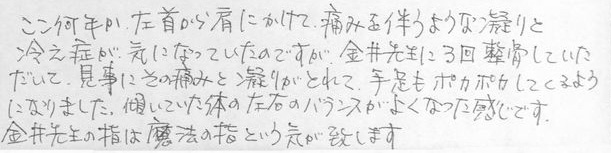 ここ何年か、左首から肩にかけて、痛みを伴うような凝りと
冷え症が、気になっていたのですが、金井先生に3回整骨していた
だいて、見事にその痛みと凝りがとれて、手足もポカポカしてくるよう
になりました。傾いていた体の左右のバランスがよくなった感じです。
金井先生の指は魔法の指という気が致します